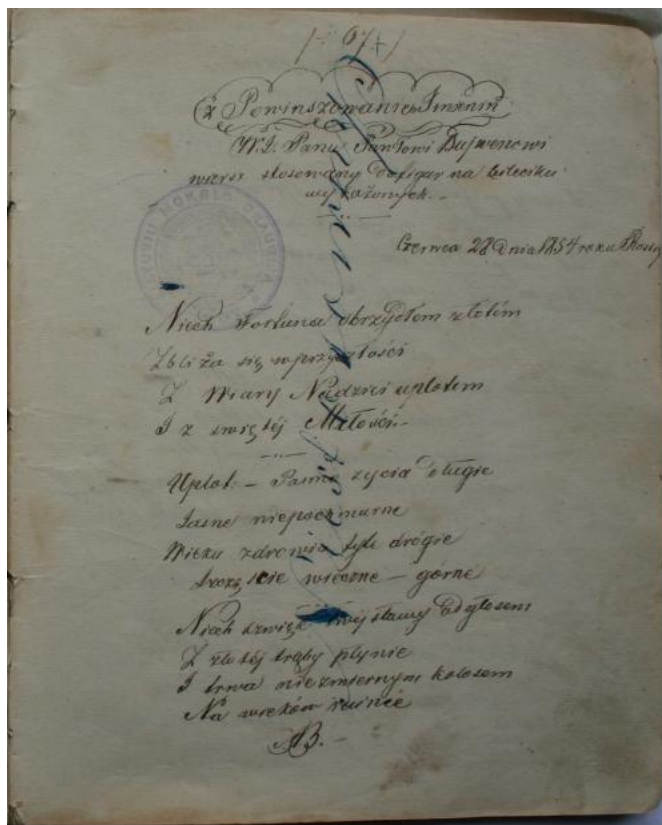 /- 67 -/
z Powinszowaniem Imienin
W.J. Panu Pawłowi Dujwenowi
wiersz stosowany do figur na bileciku
wyrażonych. -
Czerwca 28 Dnia 1854 roku
LIETUVIŲ MOKSLO DRAUGIJA
Niech Fortuna skrzydłem złotem
Zbliża się w przyszłości
Z Wiary Nadziei uplotem
I z świętéj Miłości. -
Uplot. - Pasmo życia długie
Jasne niepochmurne
Wieku zdrowia tyle drógie
Szczęście wieczne - górne
Niech dzwięk twéj sławy Odgłosem
Z złotéj trąby płynie
I trwa niezmiernym kolosem
Na wieków ruinie
AB. -